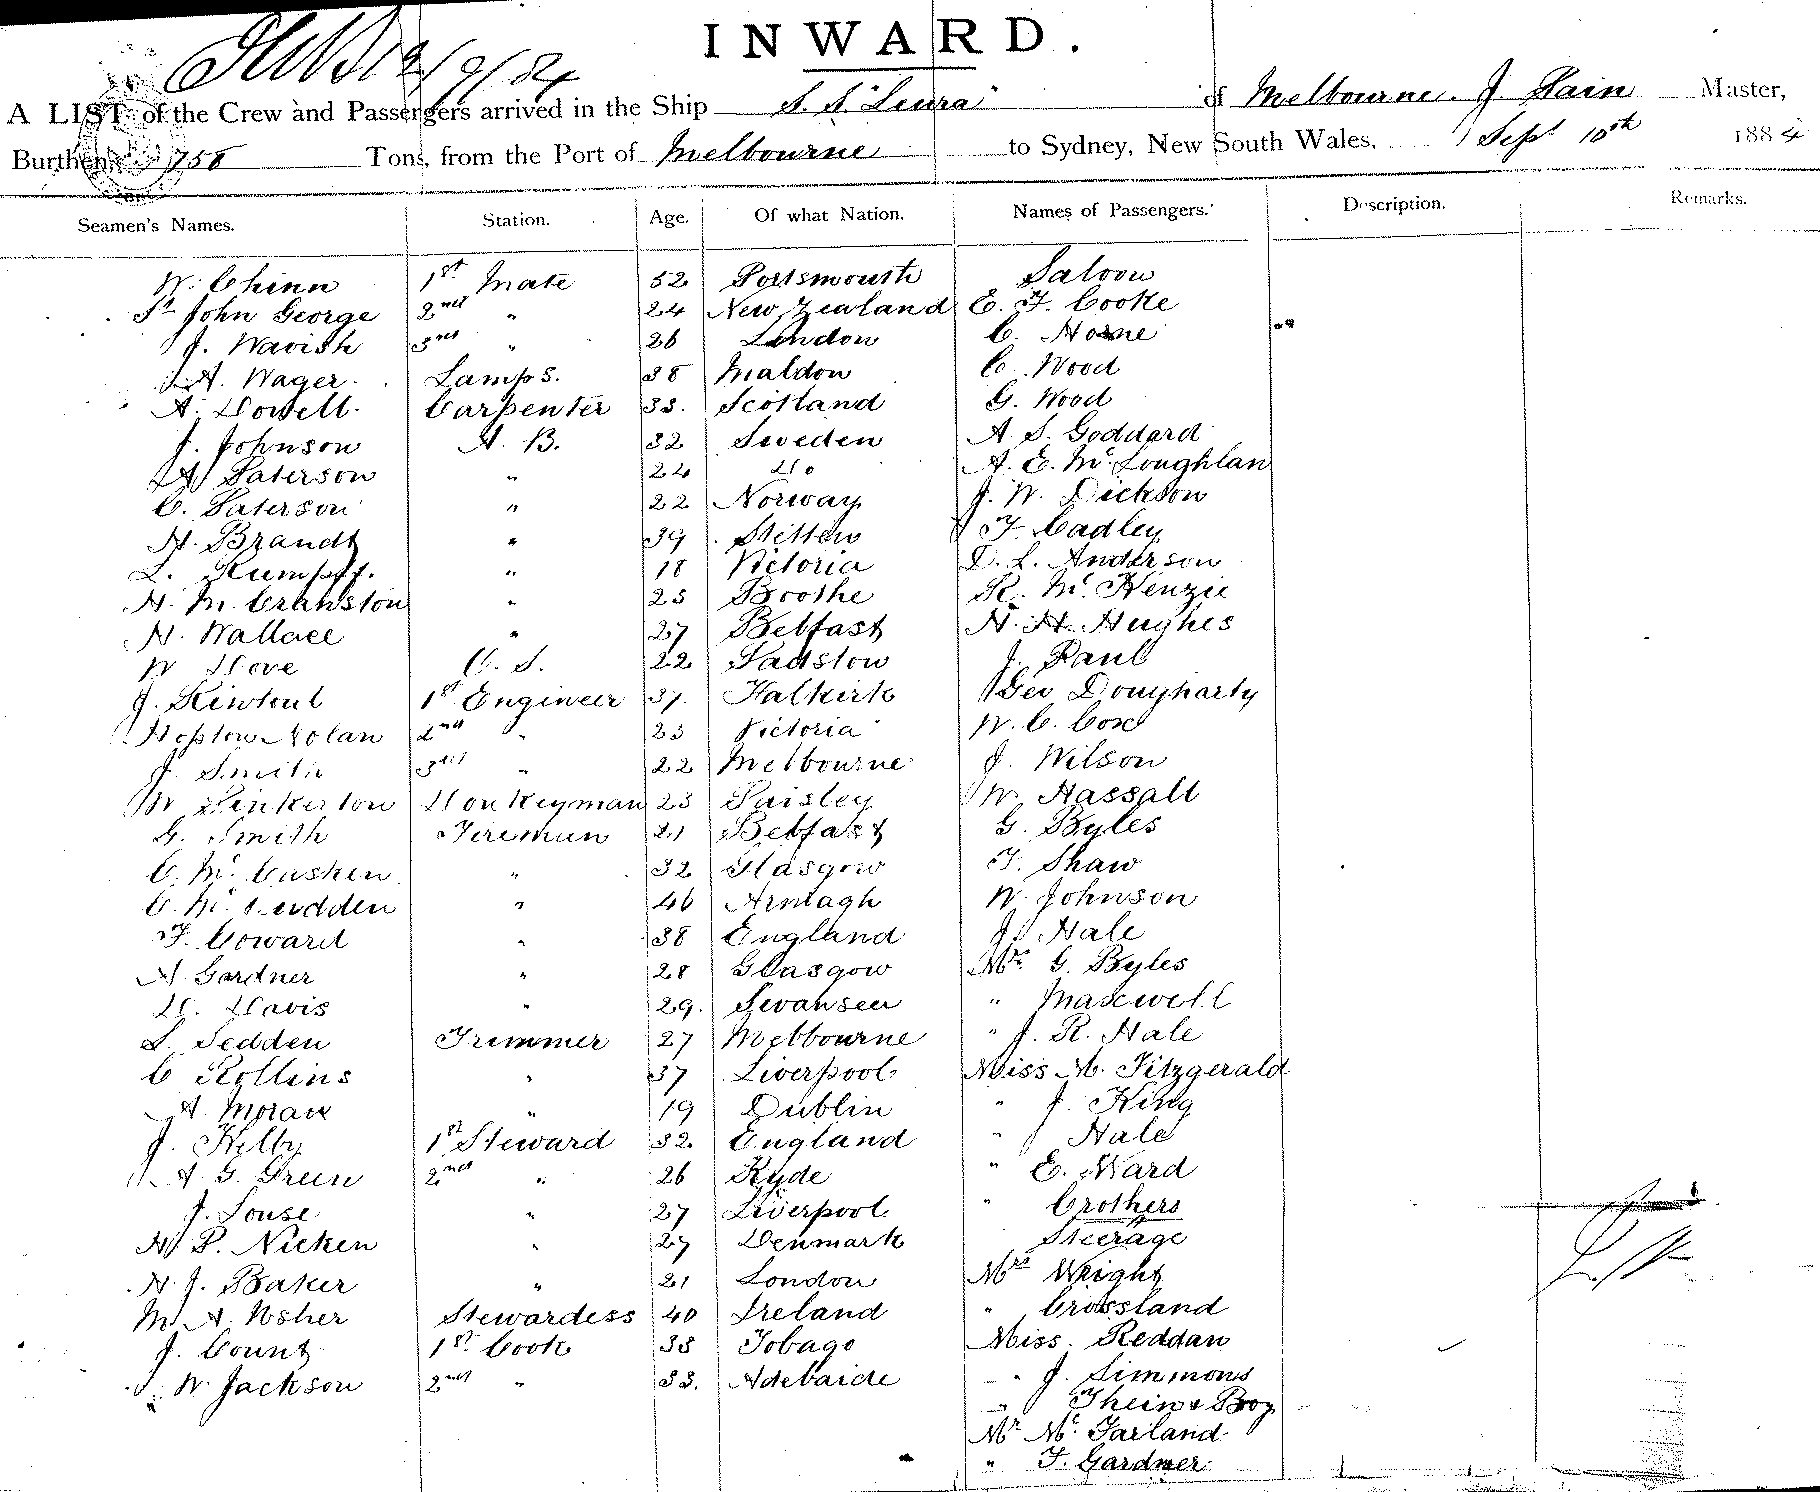 INWARD.
12/9/84
A LIST of the Crew and Passengers arrived in the Ship S. S. "Leura" of Melbourne. J. Pain Master,
Burthen 758 Tons, from the Port of Melbourne to Sydney, New South Wales. Sept 10th 1884
Seamen's Names. Station. Age. Of what Nation. Names of Passengers. Description. Remarks.
W. Chinn 1st Mate 52 Portsmouth Saloon
St John George 2nd " 24 New Zealand E. F. Cooke
J. Wavish 3rd " 26 London C. Horne
A. Wager. Lamps. 38 Maldon C. Wood
A. Dowell. Carpenter 33. Scotland G. Wood
J. Johnson A. B. 32 Sweden A. S. Goddard
A. Paterson " 24 Do A. E. Mc Loughlan
C. Paterson " 22 Norway J. W. Dickson
H. Brandt " 39 Stettin F. Cadley
L. " 18 Victoria D. L. Anderson
H. M. Cranston " 25 Boothe R. Mc Kenzie
H. Wallace " 27 Belfast H. H. Hughes
W Dove O. S. 22 Padstow J. Paul
J. Kintoul 1st Engineer 37. Falkirk Geo Dougharty
Hopton Nolan 2nd " 23 Victoria W. C. Cox
J. Smith 3rd " 22 Melbourne J. Wilson
W Pinkerton Donkeyman 23 Paisley W. Hassall
G. Smith Fireman 21 Belfast G. Byles
C. Mc Cusken " 32 Glasgow F. Shaw
C. Mc " 46 Armagh W. Johnson
F. Coward " 38 England J. Hale
H. Gardner " 28 Glasgow Mrs G. Byles
D. Davis " 29. Swansea " Maxwell
S. Sedden Trimmer 27 Melbourne " J. R. Hale
C Rollins " 37 Liverpool Miss M. Fitzgerald
A. Moran " 19 Dublin " J. King
J. Kelby 1st Steward 32. England " Hale
A. G. Green 2nd " 26 Ryde " E. Ward
J. Louse " 27 Liverpool " Crothers
H P. Nicken " 27 Denmark Steerage
H. J. Baker " 21 London Mrs Wright
M. A. Usher Stewardess 40 Ireland " Crossland
J. Count 1st Cook 38 Tobago Miss. Reddan
W. Jackson 2nd " 33. Adelaide " J. Simmons
" Thein & Boy
Mr Mc Farland
" F. Gardner